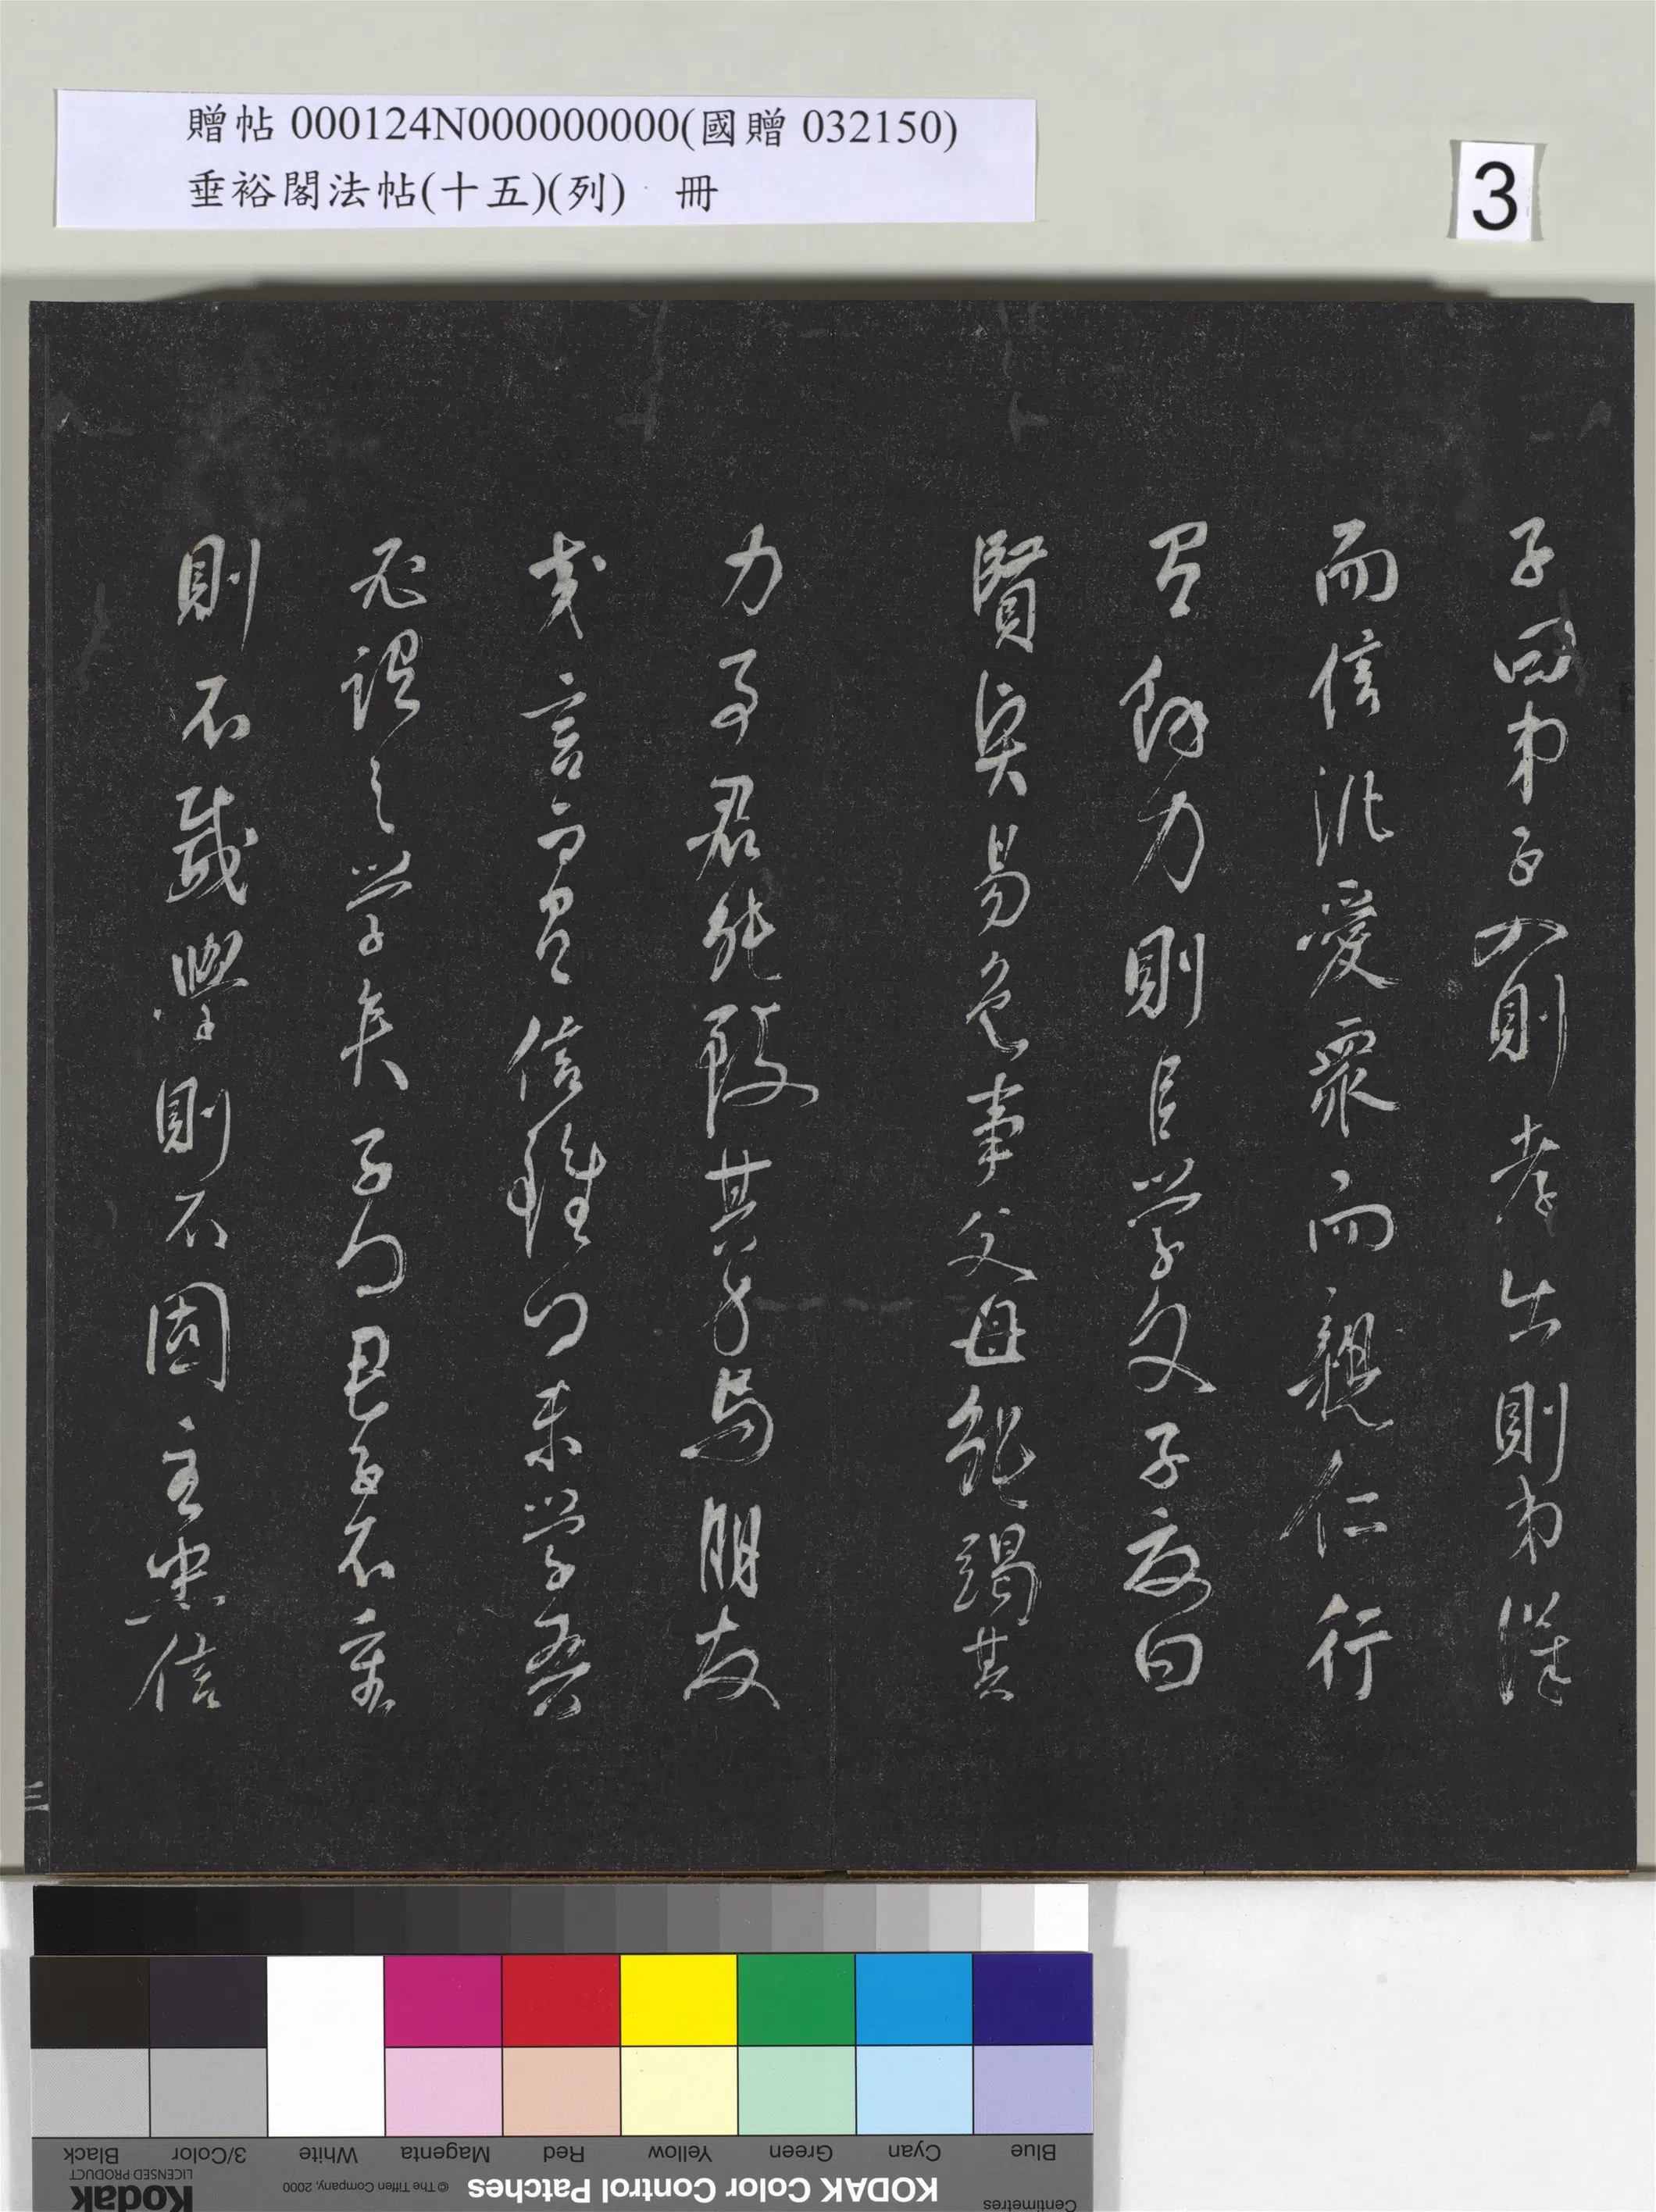 贈帖 000124N000000000(國贈 032150)
垂裕閣法帖(十五)(列) 冊
3
子曰弟子入則孝出則弟謹
而信汎愛眾而親仁行
有餘力則以學文子夏曰
賢賢易色事父母能竭其
力事君能致其身與朋友
交言而有信雖曰未學吾
必謂之學矣子曰君子不重
則不威學則不固主忠信
三
Blue
Cyan
Green
Yellow
Red
Magenta
White
3/Color
Black
Centimetres
KODAK Color Control Patches
© The Tiffen Company, 2000
Kodak
LICENSED PRODUCT